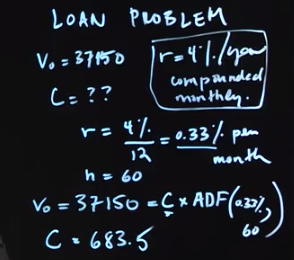 LOAN PROBLEM
V₀ = 37150
r = 4%/year
compounded
monthly.
C = ??
r = 4% / 12 = 0.33% per
month
n = 60
V₀ = 37150 = C × ADF(0.33%,
60)
C = 683.5